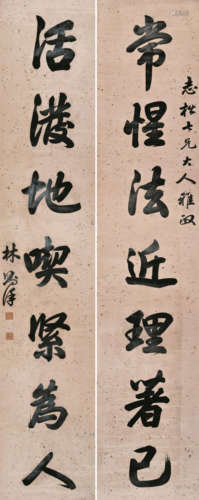 常惺法近理著己
志松七兄大人雅政
活潑地喫緊為人
林则徐